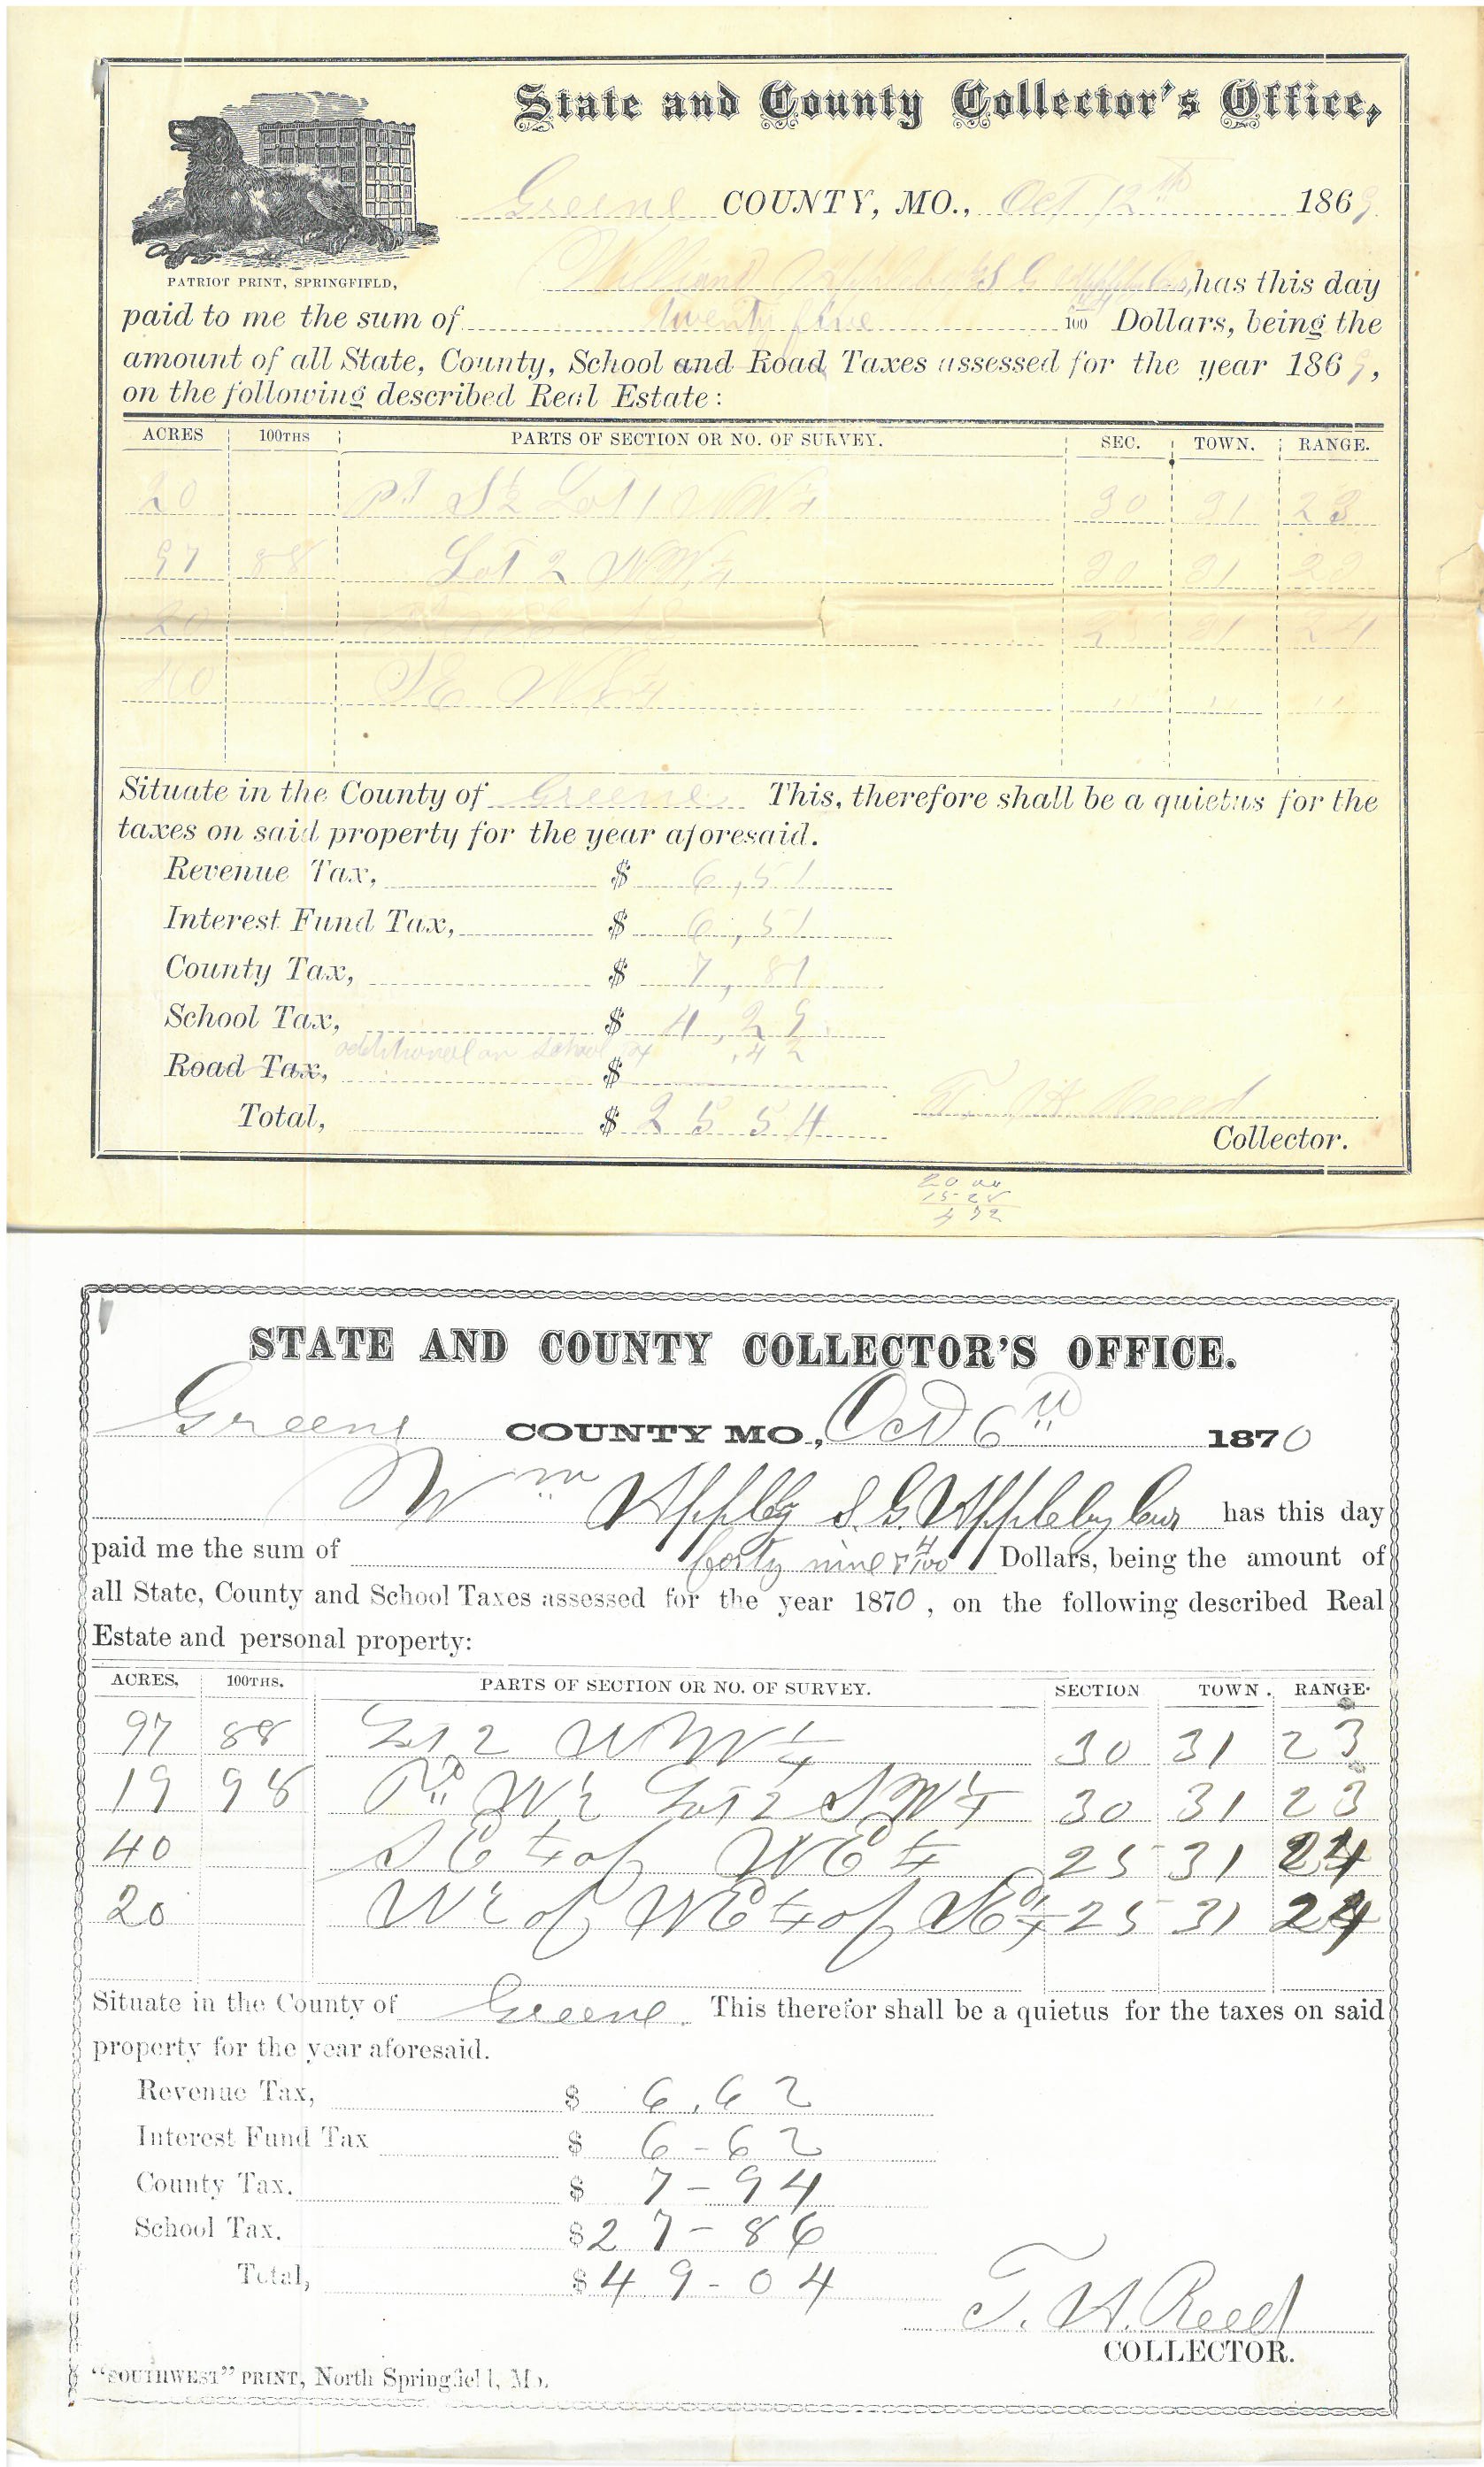 State and County Collector's Office,
Greene COUNTY, MO., Oct 12th 1869
PATRIOT PRINT, SPRINGFIELD,
has this day
paid to me the sum of twenty five 54/100 Dollars, being the
amount of all State, County, School and Road Taxes assessed for the year 1869,
on the following described Real Estate:
ACRES 100THS PARTS OF SECTION OR NO. OF SURVEY. SEC. TOWN. RANGE.
20 pt S½ Lot 1 NW¼ 30 31 23
97 88 Lot 2 NW¼ 30 31 23
20 25 31 24
40 SE NE¼ " " "
Situate in the County of Greene This, therefore shall be a quietus for the
taxes on said property for the year aforesaid.
Revenue Tax, $ 6,51
Interest Fund Tax, $ 6,51
County Tax, $ 7,81
School Tax, $ 4,29
additional on School Tax ,42
Road Tax, $
Total, $ 25 54
T. H. Reed
Collector.
20 00
15 28
4 72
STATE AND COUNTY COLLECTOR'S OFFICE.
Greene COUNTY MO., Oct 6th 1870
Wm Appleby S. G. Appleby Cur has this day
paid me the sum of forty nine & 4/100 Dollars, being the amount of
all State, County and School Taxes assessed for the year 1870, on the following described Real
Estate and personal property:
ACRES, 100THS. PARTS OF SECTION OR NO. OF SURVEY. SECTION TOWN. RANGE.
97 88 Lot 2 NW¼ 30 31 23
19 98 Pt N½ Lot 2 SW¼ 30 31 23
40 SE¼ of NE¼ 25 31 24
20 N½ of NE¼ of SE¼ 25 31 24
Situate in the County of Greene. This therefor shall be a quietus for the taxes on said
property for the year aforesaid.
Revenue Tax, $ 6,62
Interest Fund Tax $ 6-62
County Tax. $ 7-94
School Tax. $27-86
Total, $49-04
T. H. Reed
COLLECTOR.
"SOUTHWEST" PRINT, North Springfield, Mo.